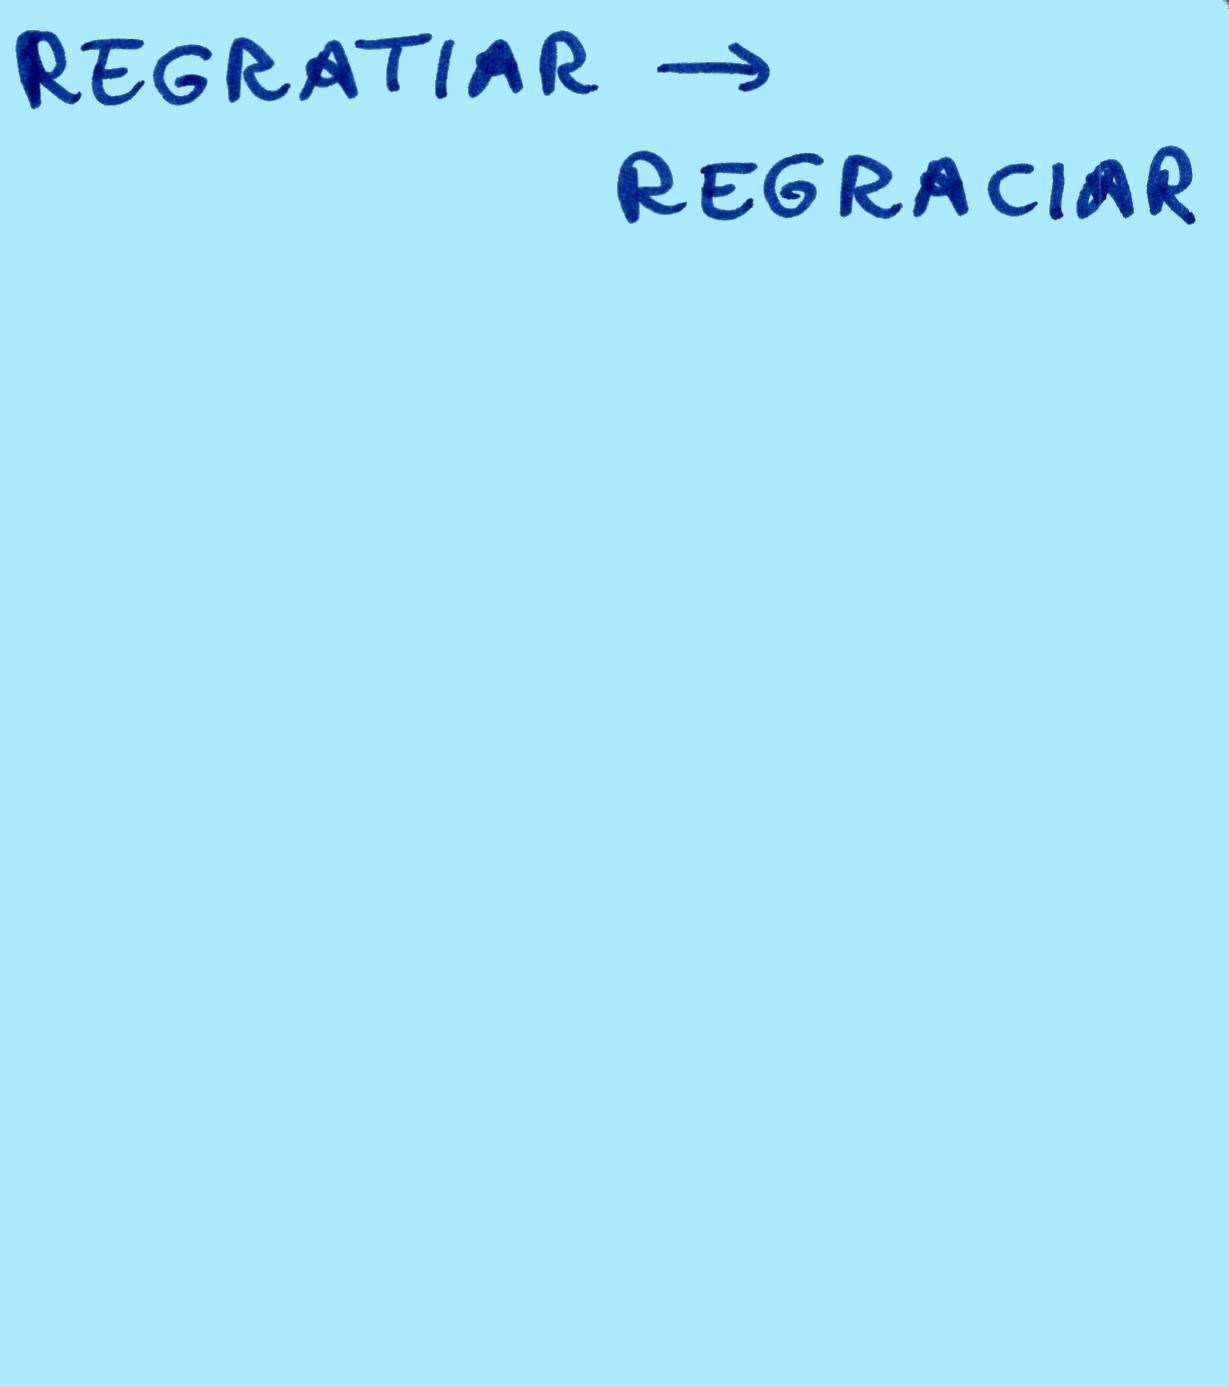 REGRATIAR →
REGRACIAR